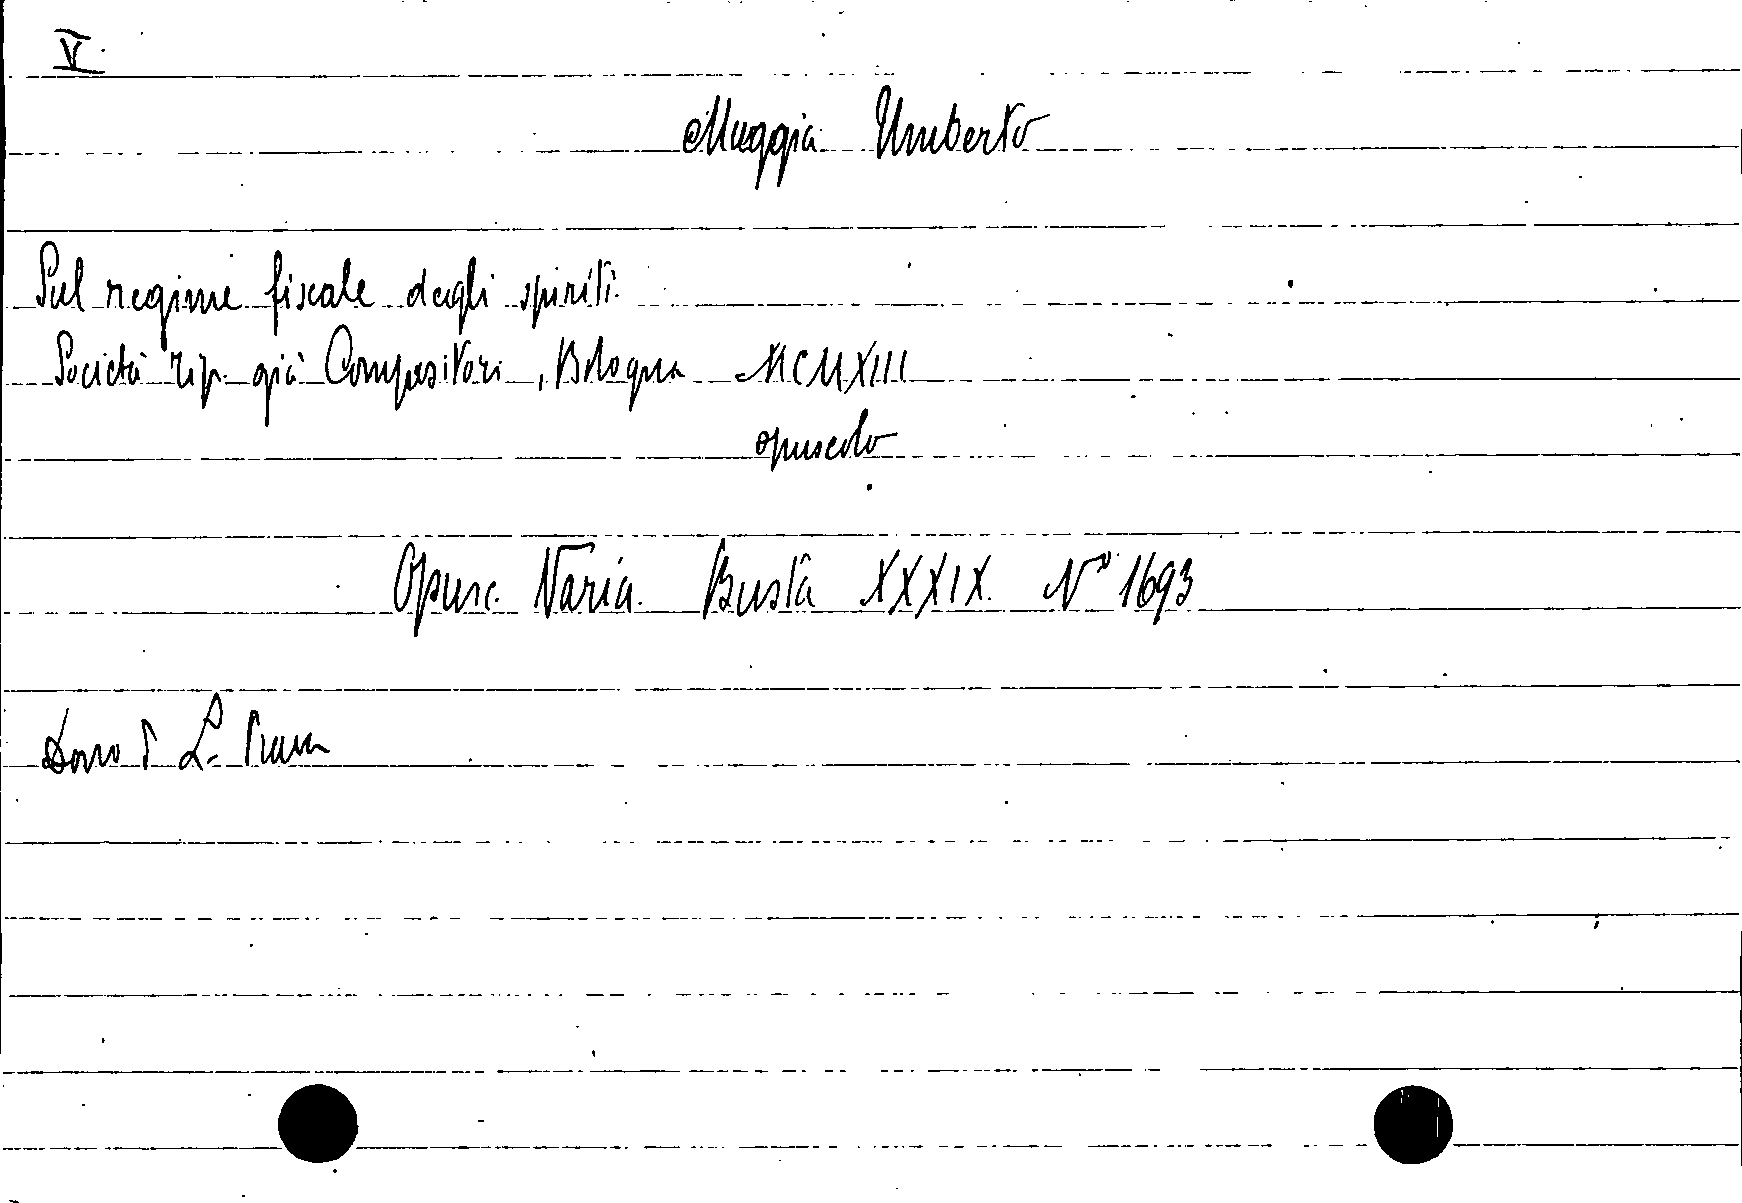 V.
Muggia Umberto
Sul regime fiscale degli spiriti.
Società tip. già Compositori, Bologna MCMXIII
opuscolo
Opusc. Varia. Busta XXXIX. N° 1693
Dono L.